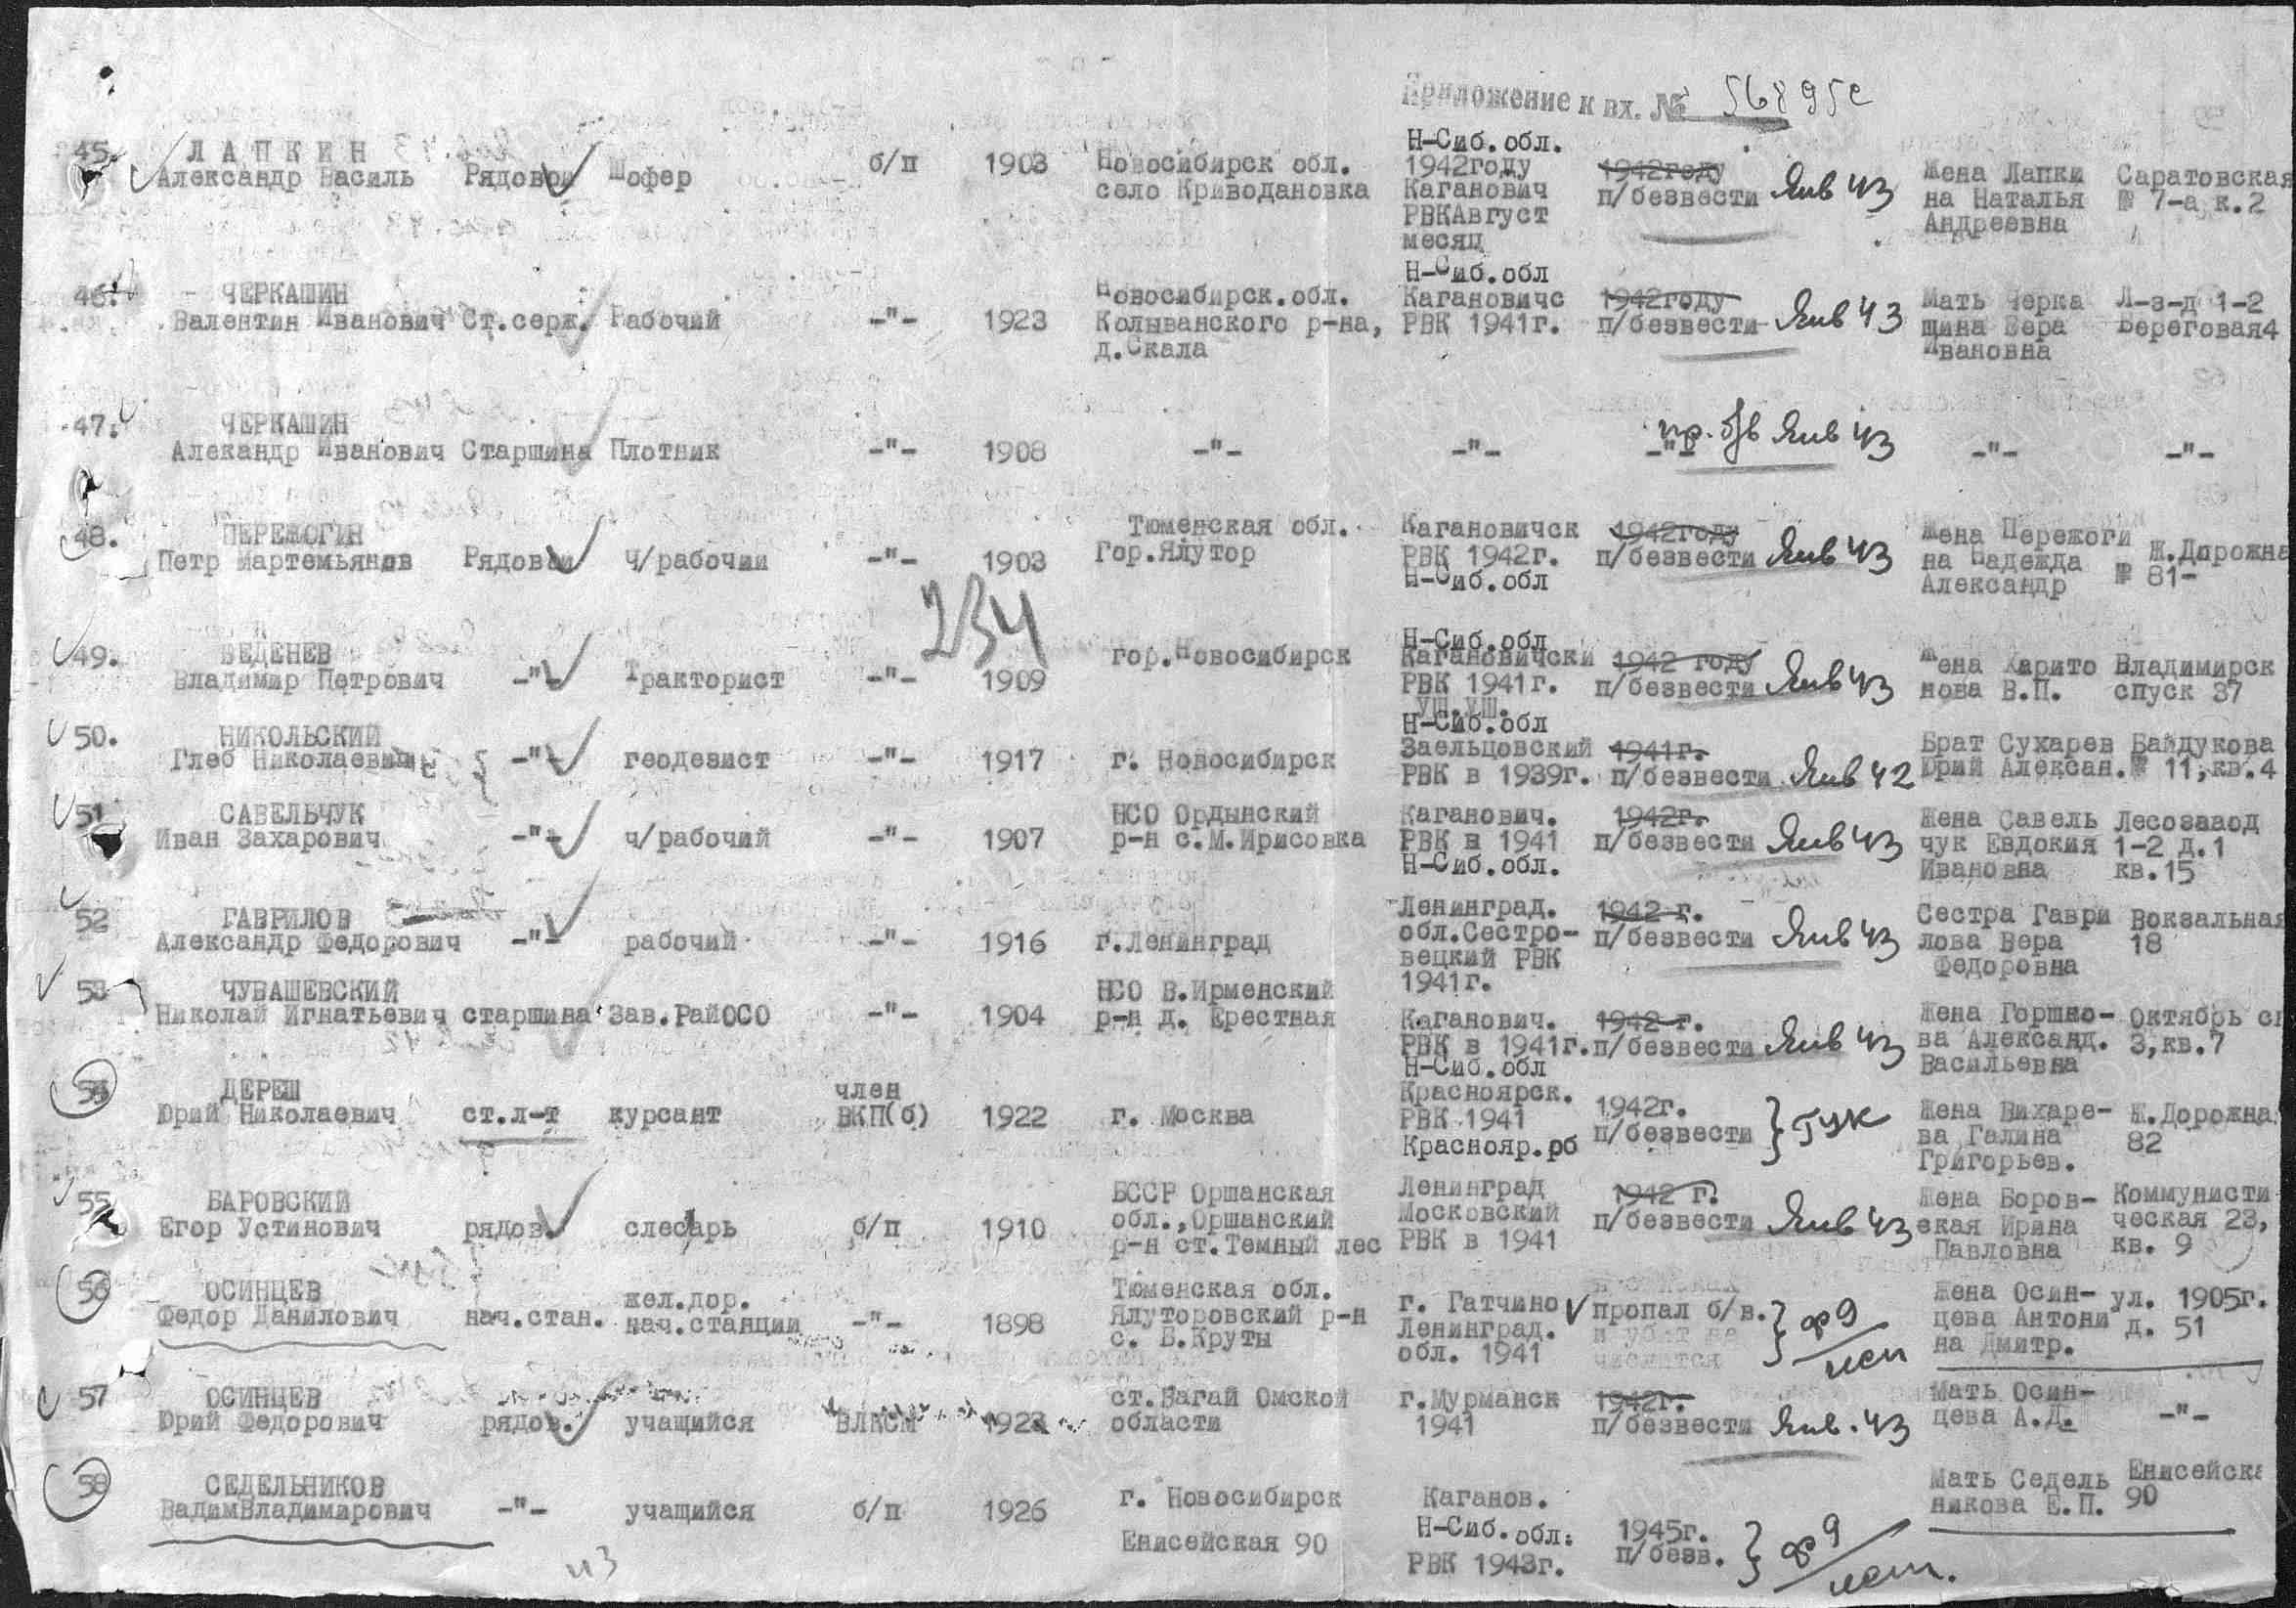 Приложение к вх. № 56895с
45. ЛАПКИН Александр Василь Рядовой Шофер б/п 1903 Новосибирск обл. село Криводановка Н-Сиб.обл. 1942году Каганович РВКАвгуст месяц 1942году п/безвести Янв 43 Жена Лапки на Наталья Андреевна Саратовская № 7-а к.2
46. ЧЕРКАШИН Валентин Иванович Ст.серж. Рабочий -"- 1923 Новосибирск.обл. Колыванского р-на, д.Скала Н-Сиб.обл Кагановичс РВК 1941г. 1942году п/безвести Янв 43 Мать Черка шина Вера Ивановна Л-з-д 1-2 Береговая4
47. ЧЕРКАШИН Алекандр Иванович Старшина Плотник -"- 1908 -"- -"- -"- пр. б/в Янв 43 -"- -"-
48. ПЕРЕЖОГИН Петр Мартемьянов Рядовой ч/рабочий -"- 1903 Тюменская обл. Гор.Ялутор Кагановичск РВК 1942г. Н-Сиб.обл 1942году п/безвести Янв 43 Жена Пережоги на Надежда Александр Ж.Дорожна № 81-
234
49. ВЕДЕНЕВ Владимир Петрович -"- Тракторист -"- 1909 гор.Новосибирск Н-Сиб.обл Кагановичски РВК 1941г. 1942 году п/безвести Янв 43 Жена Харито нова В.П. Владимирск спуск 37
50. НИКОЛЬСКИЙ Глеб Николаевич -"- геодезист -"- 1917 г. Новосибирск Н-Сиб.обл Заельцовский РВК в 1939г. 1941г. п/безвести Янв 42 Брат Сухарев Юрий Алексан. Байдукова № 11,кв.4
51 САВЕЛЬЧУК Иван Захарович -"- ч/рабочий -"- 1907 НСО Ордынский р-н с.М.Ирисовка Каганович. РВК в 1941 Н-Сиб.обл. 1942г. п/безвести Янв 43 Жена Савель чук Евдокия Ивановна Лесозааод 1-2 д.1 кв.15
52 ГАВРИЛОВ Александр Федорович -"- рабочий -"- 1916 г.Ленинград Ленинград. обл.Сестро- вецкий РВК 1941г. 1942 г. п/безвести Янв 43 Сестра Гаври лова Вера Федоровна Вокзальная 18
53 ЧУВАШЕВСКИЙ Николай Игнатьевич старшина Зав.РайОСО -"- 1904 НСО В.Ирменский р-н д. Ерестная Каганович. РВК в 1941г. Н-Сиб.обл 1942 г. п/безвести Янв 43 Жена Горшко- ва Александ. Васильевна Октябрь 3,кв.7
54 ДЕРЕШ Юрий Николаевич ст.л-т курсант член ВКП(б) 1922 г. Москва Красноярск. РВК 1941 Краснояр.рб 1942г. п/безвести } ГУК Жена Вихаре- ва Галина Григорьев. Ж.Дорожна 82
55 БАРОВСКИЙ Егор Устинович рядов. слесарь б/п 1910 БССР Оршанская обл.,Оршанский р-н ст.Темный лес Ленинград Московский РВК в 1941 1942 г. п/безвести Янв 43 Жена Боров- ская Ирина Павловна Коммунисти ческая 23, кв. 9
56 ОСИНЦЕВ Федор Данилович нач.стан. жел.дор. нач.станции -"- 1898 Тюменская обл. Ялуторовский р-н с. Б.Круты г. Гатчино Ленинград. обл. 1941 пропал б/в. } ф9 Жена Осин- цева Антони на Дмитр. ул. 1905г. д. 51
57 ОСИНЦЕВ Юрий Федорович рядов. учащийся ВЛКСМ ст.Вагай Омской области г.Мурманск 1941 1942г. п/безвести Янв. 43 Мать Осин- цева А.Д. -"-
58 СЕДЕЛЬНИКОВ ВадимВладимирович -"- учащийся б/п 1926 г. Новосибирск Енисейская 90 Каганов. Н-Сиб.обл. РВК 1943г. 1945г. п/безв. } ф9 Мать Седель никова Е.П. Енисейска 90